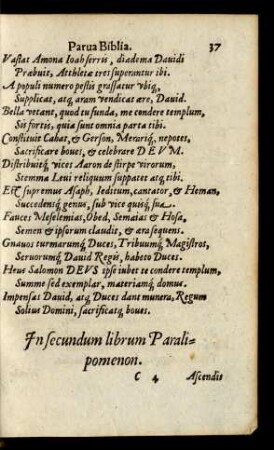 Parua Biblia. 37
Vastat Amona Ioab ferris, diadema Dauidi
Præbuit, Atthletæ tres superantur ibi.
A populi numero pestis grassatur vbiq,
Supplicat, atq, aram vendicat ære, Dauid.
Bella vetant, quod tu funda, me condere templum,
Sis fortis, quia sunt omnia parta tibi.
Constituit Cahat, & Gerson, Merariq, nepotes,
Sacrificare boues, & celebrare DEVM.
Distribuitq, vices Aaron de stirpe virorum,
Stemma Leui reliquum suppatet atq, tibi.
Est supremus Asaph, Ieditum, cantator, & Heman,
Succedensq, genus, sub vice quisq, sua.
Fauces Meselemias, Obed, Semaias & Hosa,
Semen & ipsorum claudis, & æra sequens.
Gnauos turmarumq, Duces, Tribuumq, Magistros,
Seruorumq, Dauid Regis, habeto Duces.
Heus Salomon DEVS ipse iubet te condere templum,
Summe sed exemplar, materiamq, domus.
Impensas Dauid, atq, Duces dant munera, Regum
Solius Domini, sacrificatq, boues.
In secundum librum Parali-
pomenon.
C 4 Ascendis